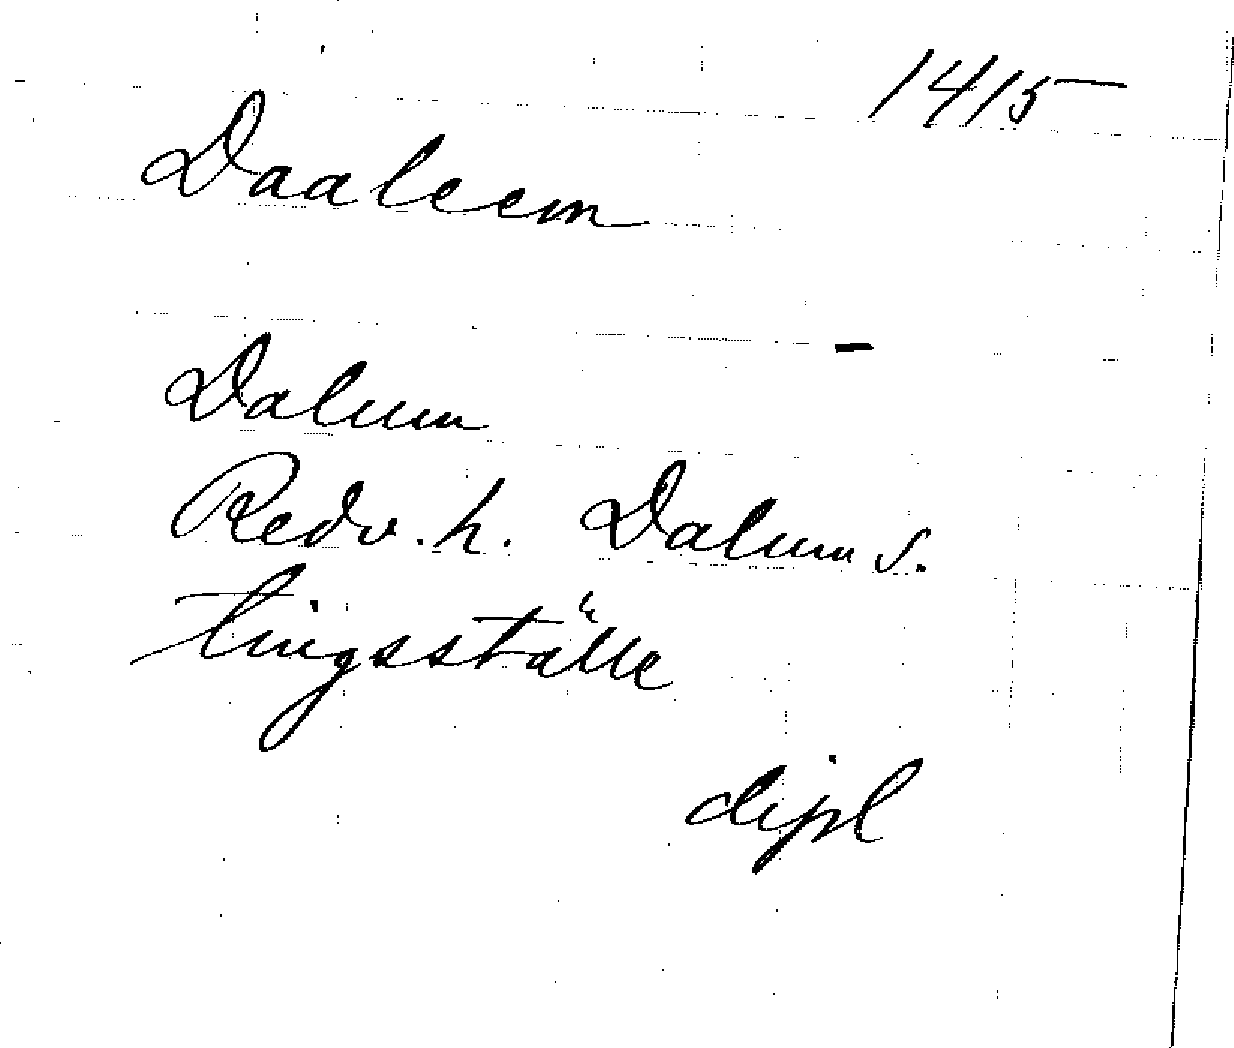 1415
Daaleem
Dalum
Redv. h. Dalum s.
tingsställe
dipl